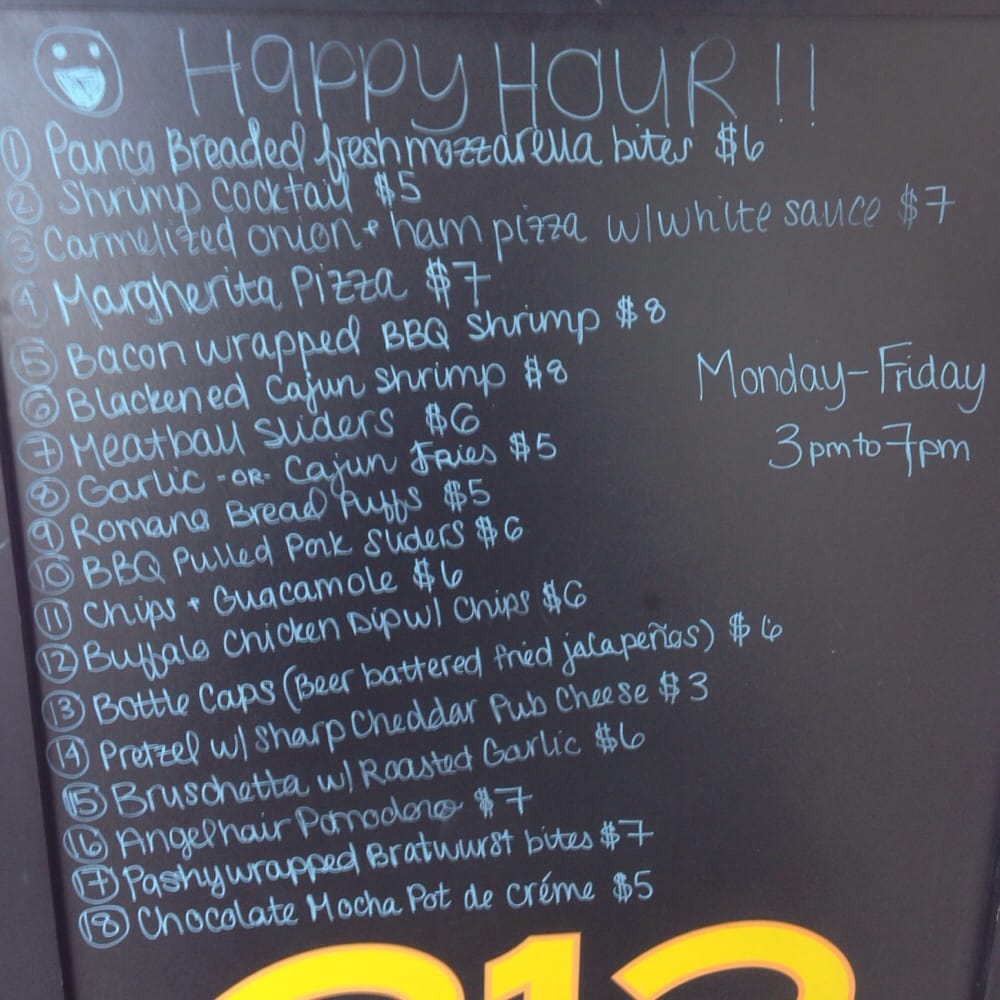 Happy Hour !!
① Panco Breaded fresh mozzarella bites $6
② Shrimp Cocktail $5
③ Carmelized onion + ham pizza w/white sauce $7
④ Margherita Pizza $7
⑤ Bacon wrapped BBQ Shrimp $8
⑥ Blackened Cajun shrimp $8
Monday-Friday
3pm to 7pm
⑦ Meatball sliders $6
⑧ Garlic -OR- Cajun Fries $5
⑨ Romana Bread Puffs $5
⑩ BBQ Pulled Pork Sliders $6
⑪ Chips + Guacamole $6
⑫ Buffalo Chicken Dip w/ Chips $6
⑬ Bottle Caps (Beer battered fried jalapeños) $6
⑭ Pretzel w/ Sharp Cheddar Pub Cheese $3
⑮ Bruschetta w/ Roasted Garlic $6
⑯ Angelhair Pomodoro $7
⑰ Pashywrapped Bratwurst bites $7
⑱ Chocolate Mocha Pot de Créme $5